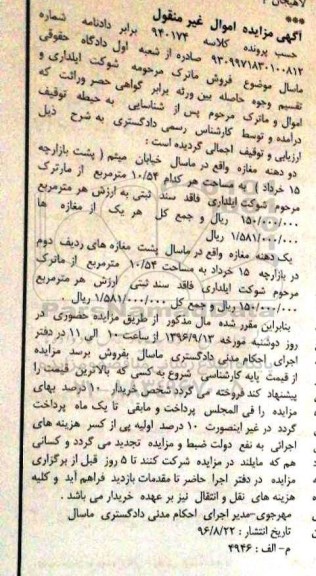 لاهیجان ۳
***
آگهی مزایده اموال غیر منقول
حسب پرونده کلاسه ۹۴۰۱۷۴ برابر دادنامه شماره
۹۳۰۹۹۷۱۸۳۰۱۰۰۸۱۲ صادره از شعبه اول دادگاه حقوقی
ماسال موضوع فروش ماترک مرحومه شوکت ایلداری و
تقسیم وجوه حاصله بین ورثه برابر گواهی حصر وراثت که
اموال و ماترک مرحوم پس از شناسایی به حیطه توقیف
درآمده و توسط کارشناس رسمی دادگستری به شرح ذیل
ارزیابی و توقیف اجمالی گردیده است :
دو دهنه مغازه واقع در ماسال خیابان میثم ( پشت بازارچه
۱۵ خرداد ) به مساحت هر کدام ۱۰/۵۴ مترمربع از مارترک
مرحوم شوکت ایلداری فاقد سند ثبتی به ارزش هر مترمربع
۱۵۰/۰۰۰/۰۰۰ ریال و جمع کل هر یک از مغازه ها
۱/۵۸۱/۰۰۰/۰۰۰ ریال
یک دهنه مغازه واقع در ماسال پشت مغازه های ردیف دوم
در بازارچه ۱۵ خرداد به مساحت ۱۰/۵۴ مترمربع از ماترک
مرحوم شوکت ایلداری فاقد سند ثبتی ارزش هر مترمربع
۱۵۰/۰۰۰/۰۰۰ ریال و جمع کل ۱/۵۸۱/۰۰۰/۰۰۰ ریال
بنابراین مقرر شده مال مذکور از طریق مزایده حضوری در
روز دوشنبه مورخه ۱۳۹۶/۹/۱۳ از ساعت ۱۰ الی ۱۱ در دفتر
اجرای احکام مدنی دادگستری ماسال بفروش برسد مزایده
از قیمت پایه کارشناسی شروع به کسی که بالاترین قیمت را
پیشنهاد کند فروخته می گردد شخص خریدار ۱۰ درصد بهای
مزایده را فی المجلس پرداخت و مابقی تا یک ماه پرداخت
گردد در غیر اینصورت ۱۰ درصد اولیه پی از کسر هزینه های
اجرائی به نفع دولت ضبط و مزایده تجدید می گردد و کسانی
هم که مایلند در مزایده شرکت کنند تا ۵ روز قبل از برگزاری
مزایده در دفتر اجرا حاضر تا مقدمات بازدید فراهم آید و کلیه
هزینه های نقل و انتقال نیز بر عهده خریدار می باشد .
مهرجوی–مدیر اجرای احکام مدنی دادگستری ماسال
تاریخ انتشار : ۹۶/۸/۲۲
م- الف : ۴۹۴۶